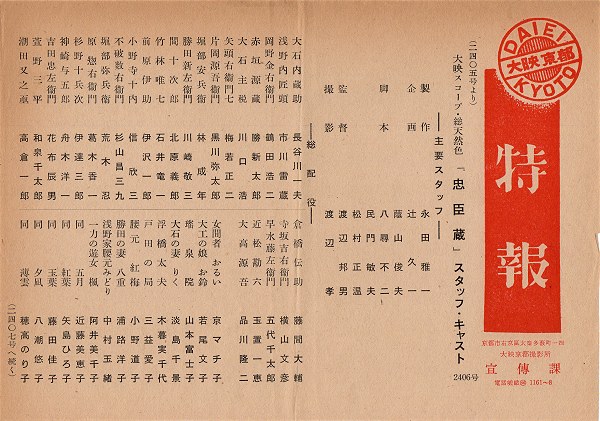 DAIEI
大映京都
KYOTO
特報
京都市右京区太秦多藪町一四
大映京都撮影所
宣傳課
電話嵯峨 1161~8
(二四〇五号より)
大映スコープ・総天然色「忠臣蔵」スタッフ・キャスト 2406号
――主要スタッフ――
製作 永田雅一
企画 辻久一
蔭山俊夫
脚本 八尋不二
民門敏夫
松村正温
監督 渡辺邦男
撮影 渡辺孝
――総配役――
大石内蔵助 長谷川一夫
浅野内匠頭 市川雷蔵
岡野金右衛門 鶴田浩二
赤垣源蔵 勝新太郎
大石主税 川口浩
矢頭右衛門七 梅若正二
片岡源吾右衛門 黒川弥太郎
堀部安兵衛 林成年
勝田新左衛門 川崎敬三
間十次郎 北原義郎
竹林唯七 石井竜一
前原伊助 伊沢一郎
小野寺十内 信欣三
不破数右衛門 杉山昌三九
堀部弥兵衛 荒木忍
原惣右衛門 葛木香一
杉野十兵次 伊達三郎
神崎与五郎 舟木洋一
吉田忠左衛門 花布辰男
萱野三平 和泉千太郎
潮田又之亟 高倉一郎
倉橋伝助 藤間大輔
寺坂吉右衛門 横山文彦
早水藤左衛門 五代千太郎
近松勘六 玉置一恵
大高源吾 品川隆二
女間者 おるい 京マチ子
大工の娘 お鈴 若尾文子
瑤泉院 山本富士子
大石の妻 りく 淡島千景
浮橋太夫 木暮実千代
戸田の局 三益愛子
腰元 紅梅 小野道子
勝田の妻 八重 浦路洋子
浅野家腰元みどり 中村玉緒
一力の遊女 楓 阿井美千子
同 五月 近藤美恵子
同 紅葉 矢島ひろ子
同 玉葉 藤田佳子
同 夕凪 八潮悠子
同 薄雲 穂高のり子
(二四〇七号へ続く)